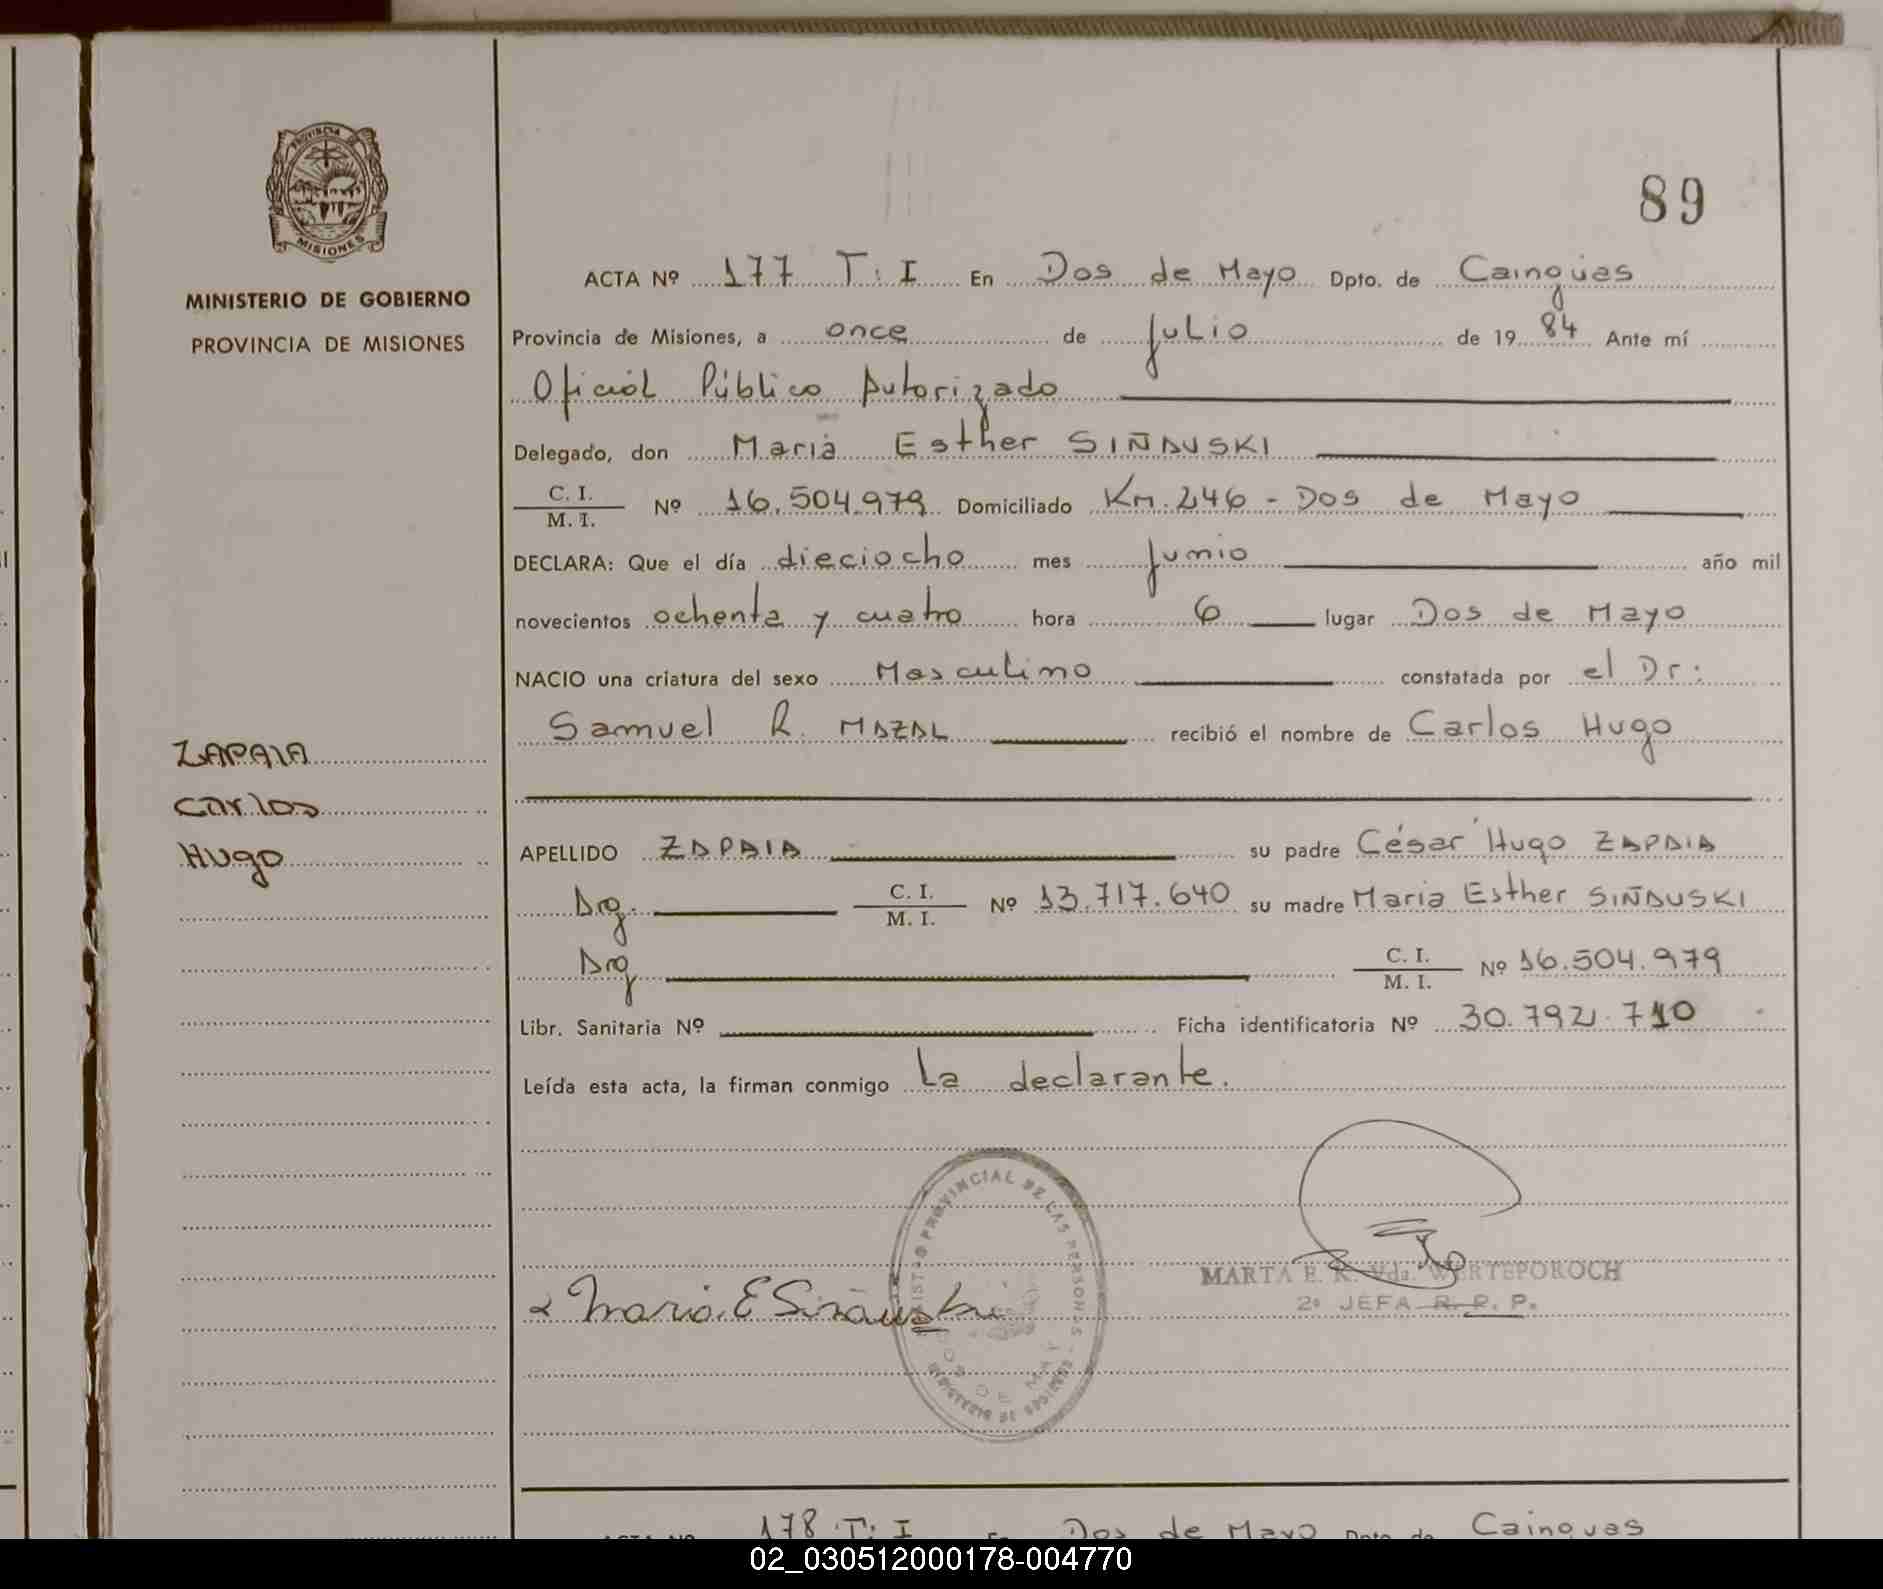 PROVINCIA DE
MISIONES
MINISTERIO DE GOBIERNO
PROVINCIA DE MISIONES
ZAPAIA
Carlos
Hugo
89
ACTA Nº 177 T: I En Dos de Mayo Dpto. de Cainguas
Provincia de Misiones, a once de Julio de 19 84 Ante mí
Oficial Público Autorizado
Delegado, don Maria Esther SIÑAUSKI
C. I. / M. I. Nº 16.504.979 Domiciliado Km. 246 - Dos de Mayo
DECLARA: Que el día dieciocho mes Junio año mil
novecientos ochenta y cuatro hora 6 lugar Dos de Mayo
NACIO una criatura del sexo Masculino constatada por el Dr:
Samuel R. MAZAL recibió el nombre de Carlos Hugo
APELLIDO ZAPAIA su padre César Hugo ZAPAIA
Arg. C. I. / M. I. Nº 13.717.640 su madre Maria Esther SIÑAUSKI
Arg C. I. / M. I. Nº 16.504.979
Libr. Sanitaria Nº Ficha identificatoria Nº 30.792.710
Leída esta acta, la firman conmigo La declarante.
PROVINCIAL DE LAS PERSONAS
MARTA E. K. Vda. WERTEPOROCH
2º JEFA R. P. P.
Maria E Siñauski
178 T: I En Dos de Mayo Dpto. de Cainguas
02_030512000178-004770